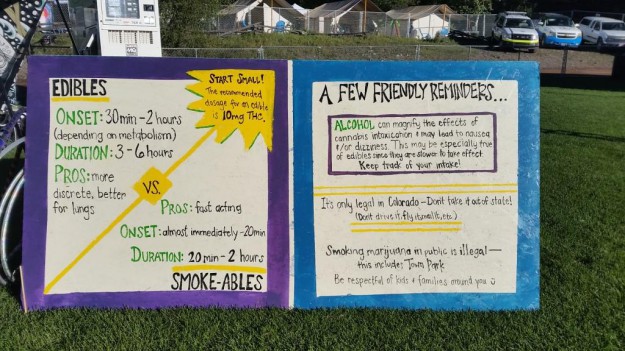 EDIBLES
ONSET: 30min-2 hours
(depending on metabolism)
DURATION: 3-6 hours
PROS: more
discrete, better
for lungs
START SMALL!
The recommended
dosage for an edible
is 10mg THC.
VS.
PROS: fast acting
ONSET: almost immediately-20min
DURATION: 20min-2 hours
SMOKE-ABLES
A FEW FRIENDLY REMINDERS...
ALCOHOL can magnify the effects of
cannabis intoxication & may lead to nausea
&/or dizziness. This may be especially true
of edibles since they are slower to take effect.
Keep track of your intake!
It's only legal in Colorado-Don't take it out of state!
(Don't drive it, fly it, mail it, etc.)
Smoking marijuana in public is illegal—
this includes Town Park
Be respectful of kids + families around you